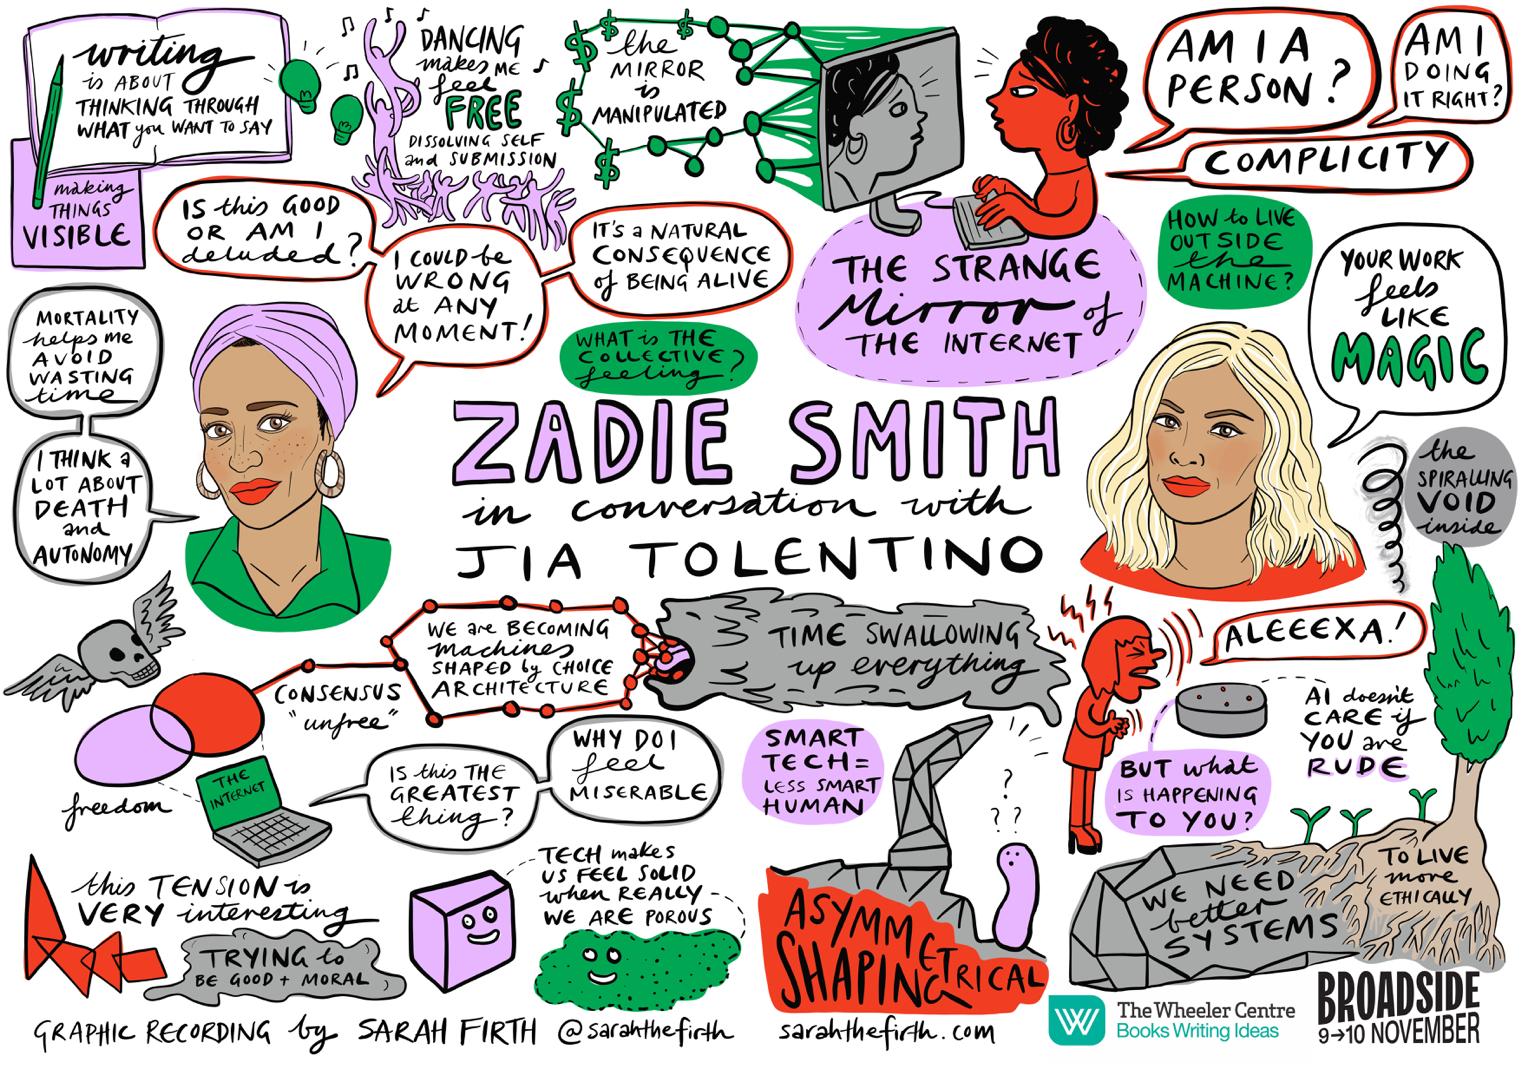 writing
is ABOUT
THINKING THROUGH
WHAT you WANT TO SAY
making
THINGS
VISIBLE
DANCING
makes ME
feel
FREE
DISSOLVING SELF
and SUBMISSION
the
MIRROR
is
MANIPULATED
$
$
$
$
$
AM I A
PERSON?
AM I
DOING
IT RIGHT?
COMPLICITY
IS this GOOD
OR AM I
deluded?
I COULD be
WRONG
at ANY
MOMENT!
IT'S a NATURAL
CONSEQUENCE
of BEING ALIVE
WHAT is THE
COLLECTIVE
feeling?
THE STRANGE
Mirror of
THE INTERNET
HOW to LIVE
OUTSIDE
the
MACHINE?
YOUR WORK
feels
LIKE
MAGIC
MORTALITY
helps me
AVOID
WASTING
time
I THINK a
LOT ABOUT
DEATH
and
AUTONOMY
ZADIE SMITH
in conversation with
JIA TOLENTINO
the
SPIRALLING
VOID
inside
CONSENSUS
"unfree"
WE are BECOMING
machines
SHAPED by CHOICE
ARCHITECTURE
TIME SWALLOWING
up everything
ALEEEXA!
AI doesn't
CARE if
YOU are
RUDE
BUT what
IS HAPPENING
TO YOU?
freedom
THE
INTERNET
IS this THE
GREATEST
thing?
WHY DO I
feel
MISERABLE
SMART
TECH =
LESS SMART
HUMAN
?
? ?
this TENSION is
VERY interesting
TRYING to
BE GOOD + MORAL
TECH makes
US FEEL SOLID
when REALLY
WE ARE POROUS
ASYMMETRICAL
SHAPING
WE NEED
better
SYSTEMS
TO LIVE
more
ETHICALLY
GRAPHIC RECORDING by SARAH FIRTH @sarahthefirth sarahthefirth.com
W
The Wheeler Centre
Books Writing Ideas
BROADSIDE
9→10 NOVEMBER